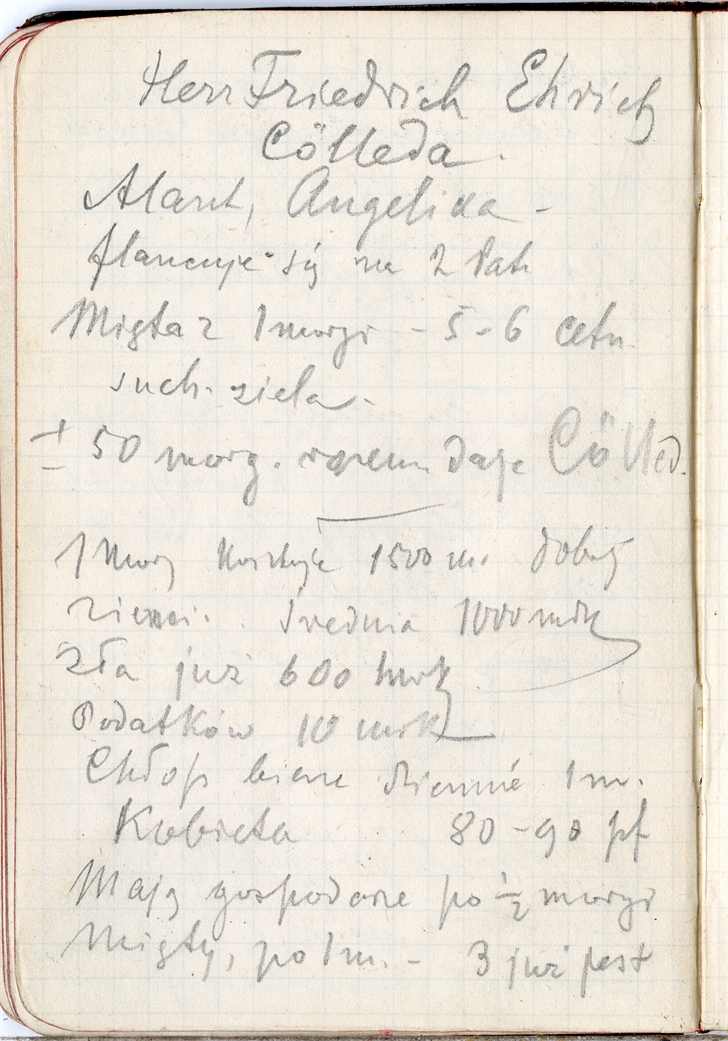 Herr Friedrich Ehrich
Cölleda.
Alant, Angelika –
flancuje się na 2 lat
Mięta z 1 morgi – 5–6 cetn.
such. ziela.
± 50 morg. razem daje Cölled.
1 Morg kosztuje 1500 m. dobrej
ziemi. średnia 1000 mrk
zła już 600 mrk
Podatków 10 mrk
Chłop bierze dziennie 1 m.
Kobieta 80–90 pf
Mają gospodarze po ½ morgi
Mięty, po 1 m. – 3 już jest